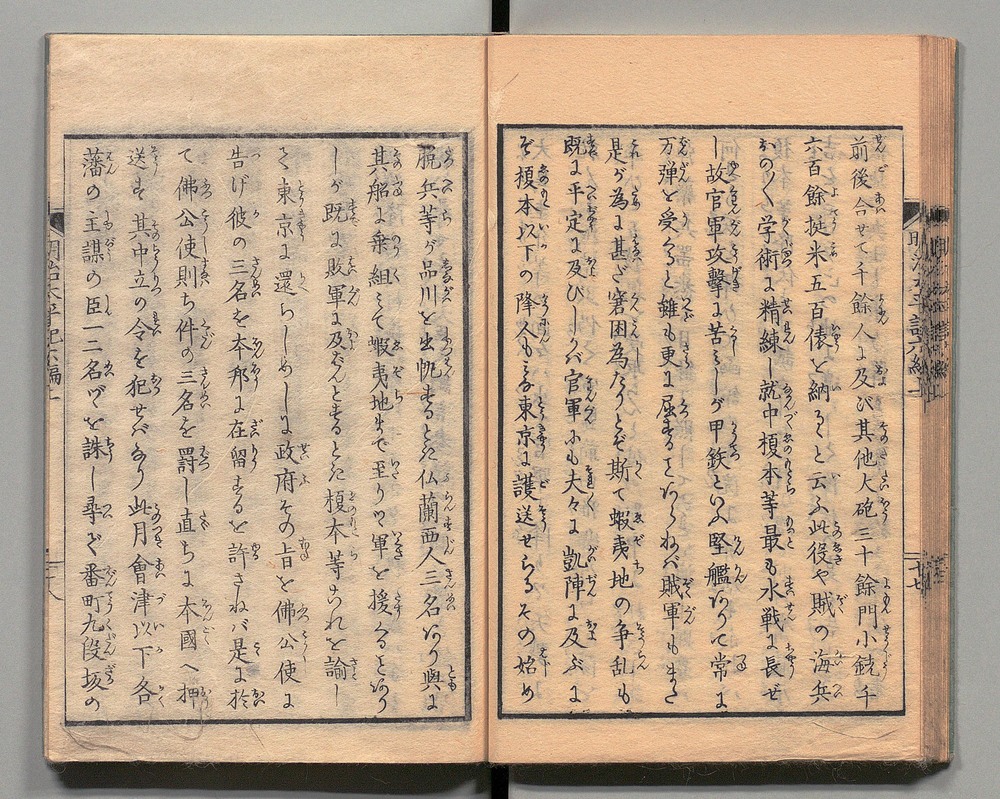 前後合せて千餘人に及び其他大砲三十餘門小銃千
六百餘挺米五百俵を納ると云ふ此役や賊の海兵
おの〳〵学術に精練し就中榎本等最も水戦に長ぜ
し故官軍攻撃に苦みしが甲鉄といふ堅艦ありて常に
万弾を受くと雖も更に屈することあらねバ賊軍もまた
是が為に甚ざ窘困為たりとぞ斯て蝦夷地の争乱も
既に平定に及びしかバ官軍にも夫々に凱陣に及ぶに
ぞ榎本以下の降人もみな東京に護送せらるその始め
脱兵等が品川を出帆するとき仏蘭西人三名あり與に
其船に乗組て蝦夷地まで至りつゝ軍を援くることあり
しが既に敗軍に及ばんとするとき榎本等これを諭し
て東京に還らしめしに政府その旨を佛公使に
告げ彼の三名を本邦に在留するを許さねバ是に於
て佛公使則ち件の三名を罰し直ちに本國へ押
送す其中立の令を犯せバなり此月會津以下各
藩の主謀の臣一二名づゝを誅し尋で番町九段坂の
明治太平記六編十